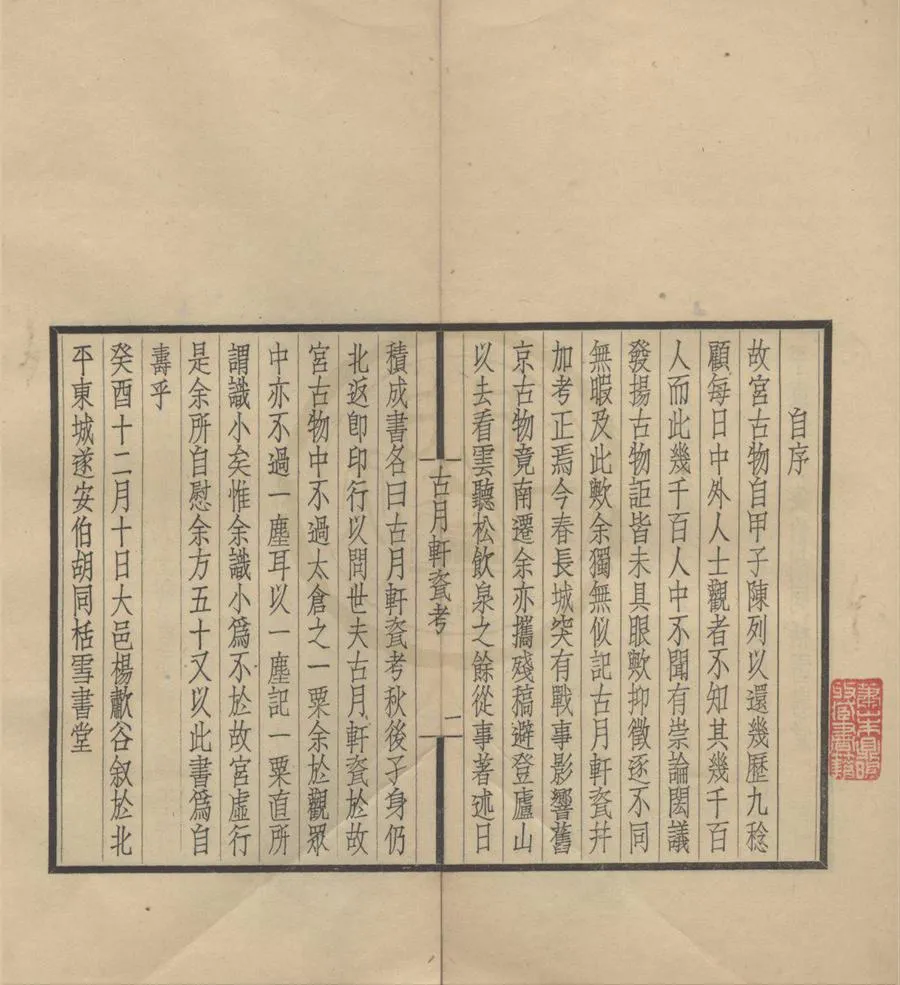 自序
故宮古物自甲子陳列以還幾歷九稔
顧每日中外人士觀者不知其幾千百
人而此幾千百人中不聞有崇論閎議
發揚古物詎皆未具眼歟抑徵逐不同
無暇及此歟余獨無似記古月軒瓷幷
加考正焉今春長城突有戰事影響舊
京古物竟南遷余亦攜殘稿避登廬山
以去看雲聽松飲泉之餘從事著述日
古月軒瓷考
二
積成書名曰古月軒瓷考秋後子身仍
北返卽印行以問世夫古月軒瓷於故
宮古物中不過太倉之一粟余於觀眾
中亦不過一塵耳以一塵記一粟直所
謂識小矣惟余識小爲不於故宮虛行
是余所自慰余方五十又以此書爲自
壽乎
癸酉十二月十日大邑楊歗谷叙於北
平東城遂安伯胡同栝雪書堂